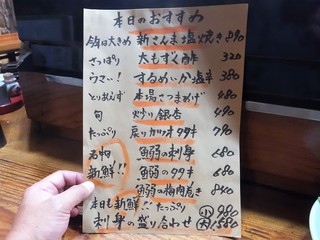 本日のおすすめ
今年大きめ 新さんま塩焼き 890
さっぱり 太もずく酢 320
ウまい! するめいか塩辛 380
とりあえず 本場さつまあげ 480
旬 炒り銀杏 490
たっぷり 戻りカツオタタキ 790
鰯の刺身 680
新鮮!! 鰯のタタキ 680
鰯の梅肉巻き 840
本日も新鮮!! たっぷり 小 980
刺身の盛り合わせ 大 1580